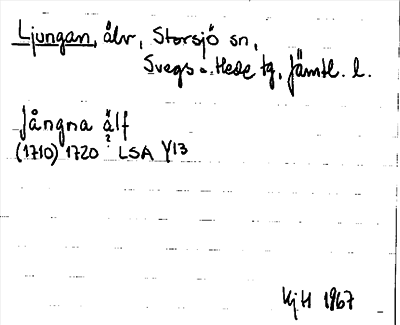 Ljungan, älv, Storsjö sn,
Svegs o. Hede tg, Jämtl. l.
Jångna älf
(1710) 1720 LSA Y13
KjH 1967